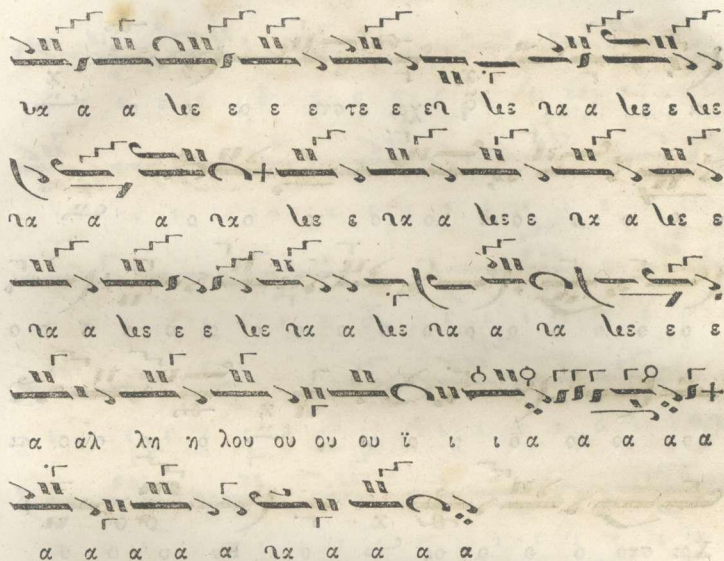 να α α νε ε ε ε τε ε εν νε να α νε ε νε
να α α να νε ε να α νε ε να α νε ε
να α νε ε ε νε να α νε να α να νε ε ε
α αλ λη η λου ου ου ου ϊ ι ι α α α α α α
α α α α α α να α α α α